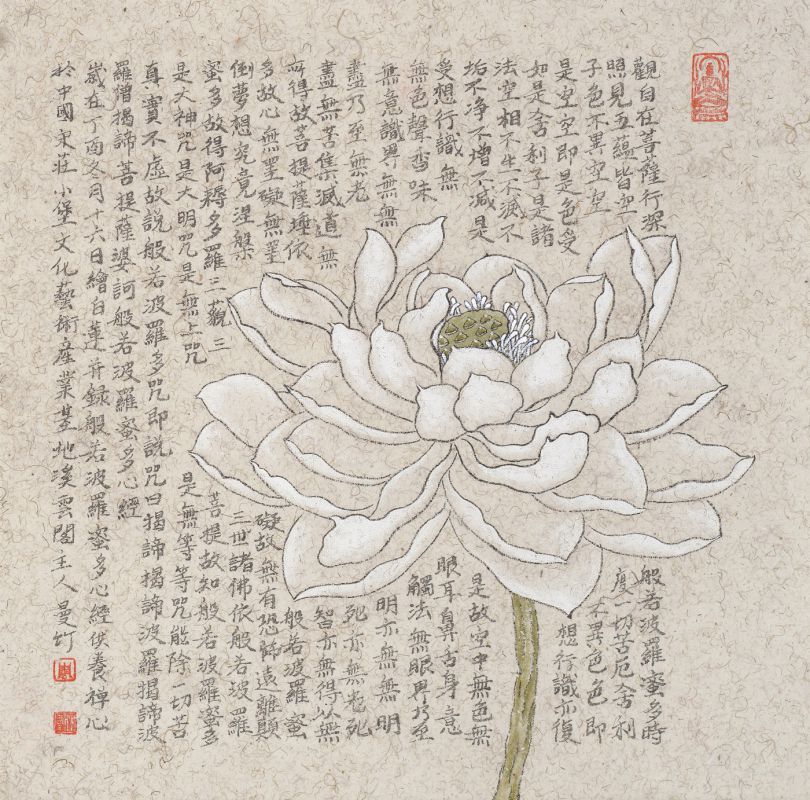 觀自在菩薩行深般若波羅蜜多時
照見五蘊皆空度一切苦厄舍利
子色不異空空不異色色即
是空空即是色受想行識亦復
如是舍利子是諸
法空相不生不滅不
垢不净不增不减是是故空中無色無
受想行識無眼耳鼻舌身意
無色聲香味觸法無眼界乃至
無意識界無無明亦無無明
盡乃至無老死亦無老死
盡無苦集滅道無智亦無得以無
所得故菩提薩埵依般若波羅蜜
多故心無罣礙無罣礙故無有恐怖遠離顛
倒夢想究竟涅槃三世諸佛依般若波羅
蜜多故得阿耨多羅三藐三菩提故知般若波羅蜜多
是大神咒是大明咒是無上咒是無等等咒能除一切苦
真實不虛故說般若波羅多咒即說咒曰揭諦揭諦波羅揭諦波
羅僧揭諦菩提薩婆訶般若波羅蜜多心經
歲在丁酉冬月十六日繪白蓮并録般若波羅蜜多心經供養禅心
於中國宋莊小堡文化藝術産業基地溪雲閣主人曼竹